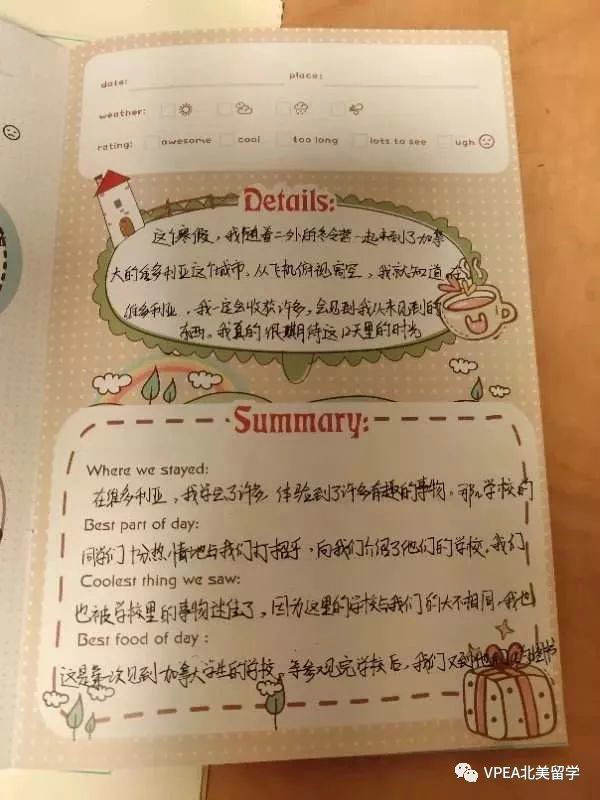 date: place:
weather:
rating: awesome cool too long lots to see ugh
Details:
这个寒假，我随着二外的冬令营一起来到了加拿
大的维多利亚这个城市。从飞机俯视高空，我就知道在
维多利亚，我一定会收获许多，会见到我从来见到的
东西。我真的很期待这12天里的时光
Summary:
Where we stayed:
在维多利亚，我学会了许多 体验到了许多有趣的事物。那儿学校的
Best part of day:
同学们十分热情地与我们打招乎，向我们介绍了他们的学校。我们
Coolest thing we saw:
也被学校里的事物迷住了，因为这里的学校与我们的大不相同。我也
Best food of day :
这是第一次见到加拿大学生的学校。等参观完学校后，我们又到
VPEA北美留学